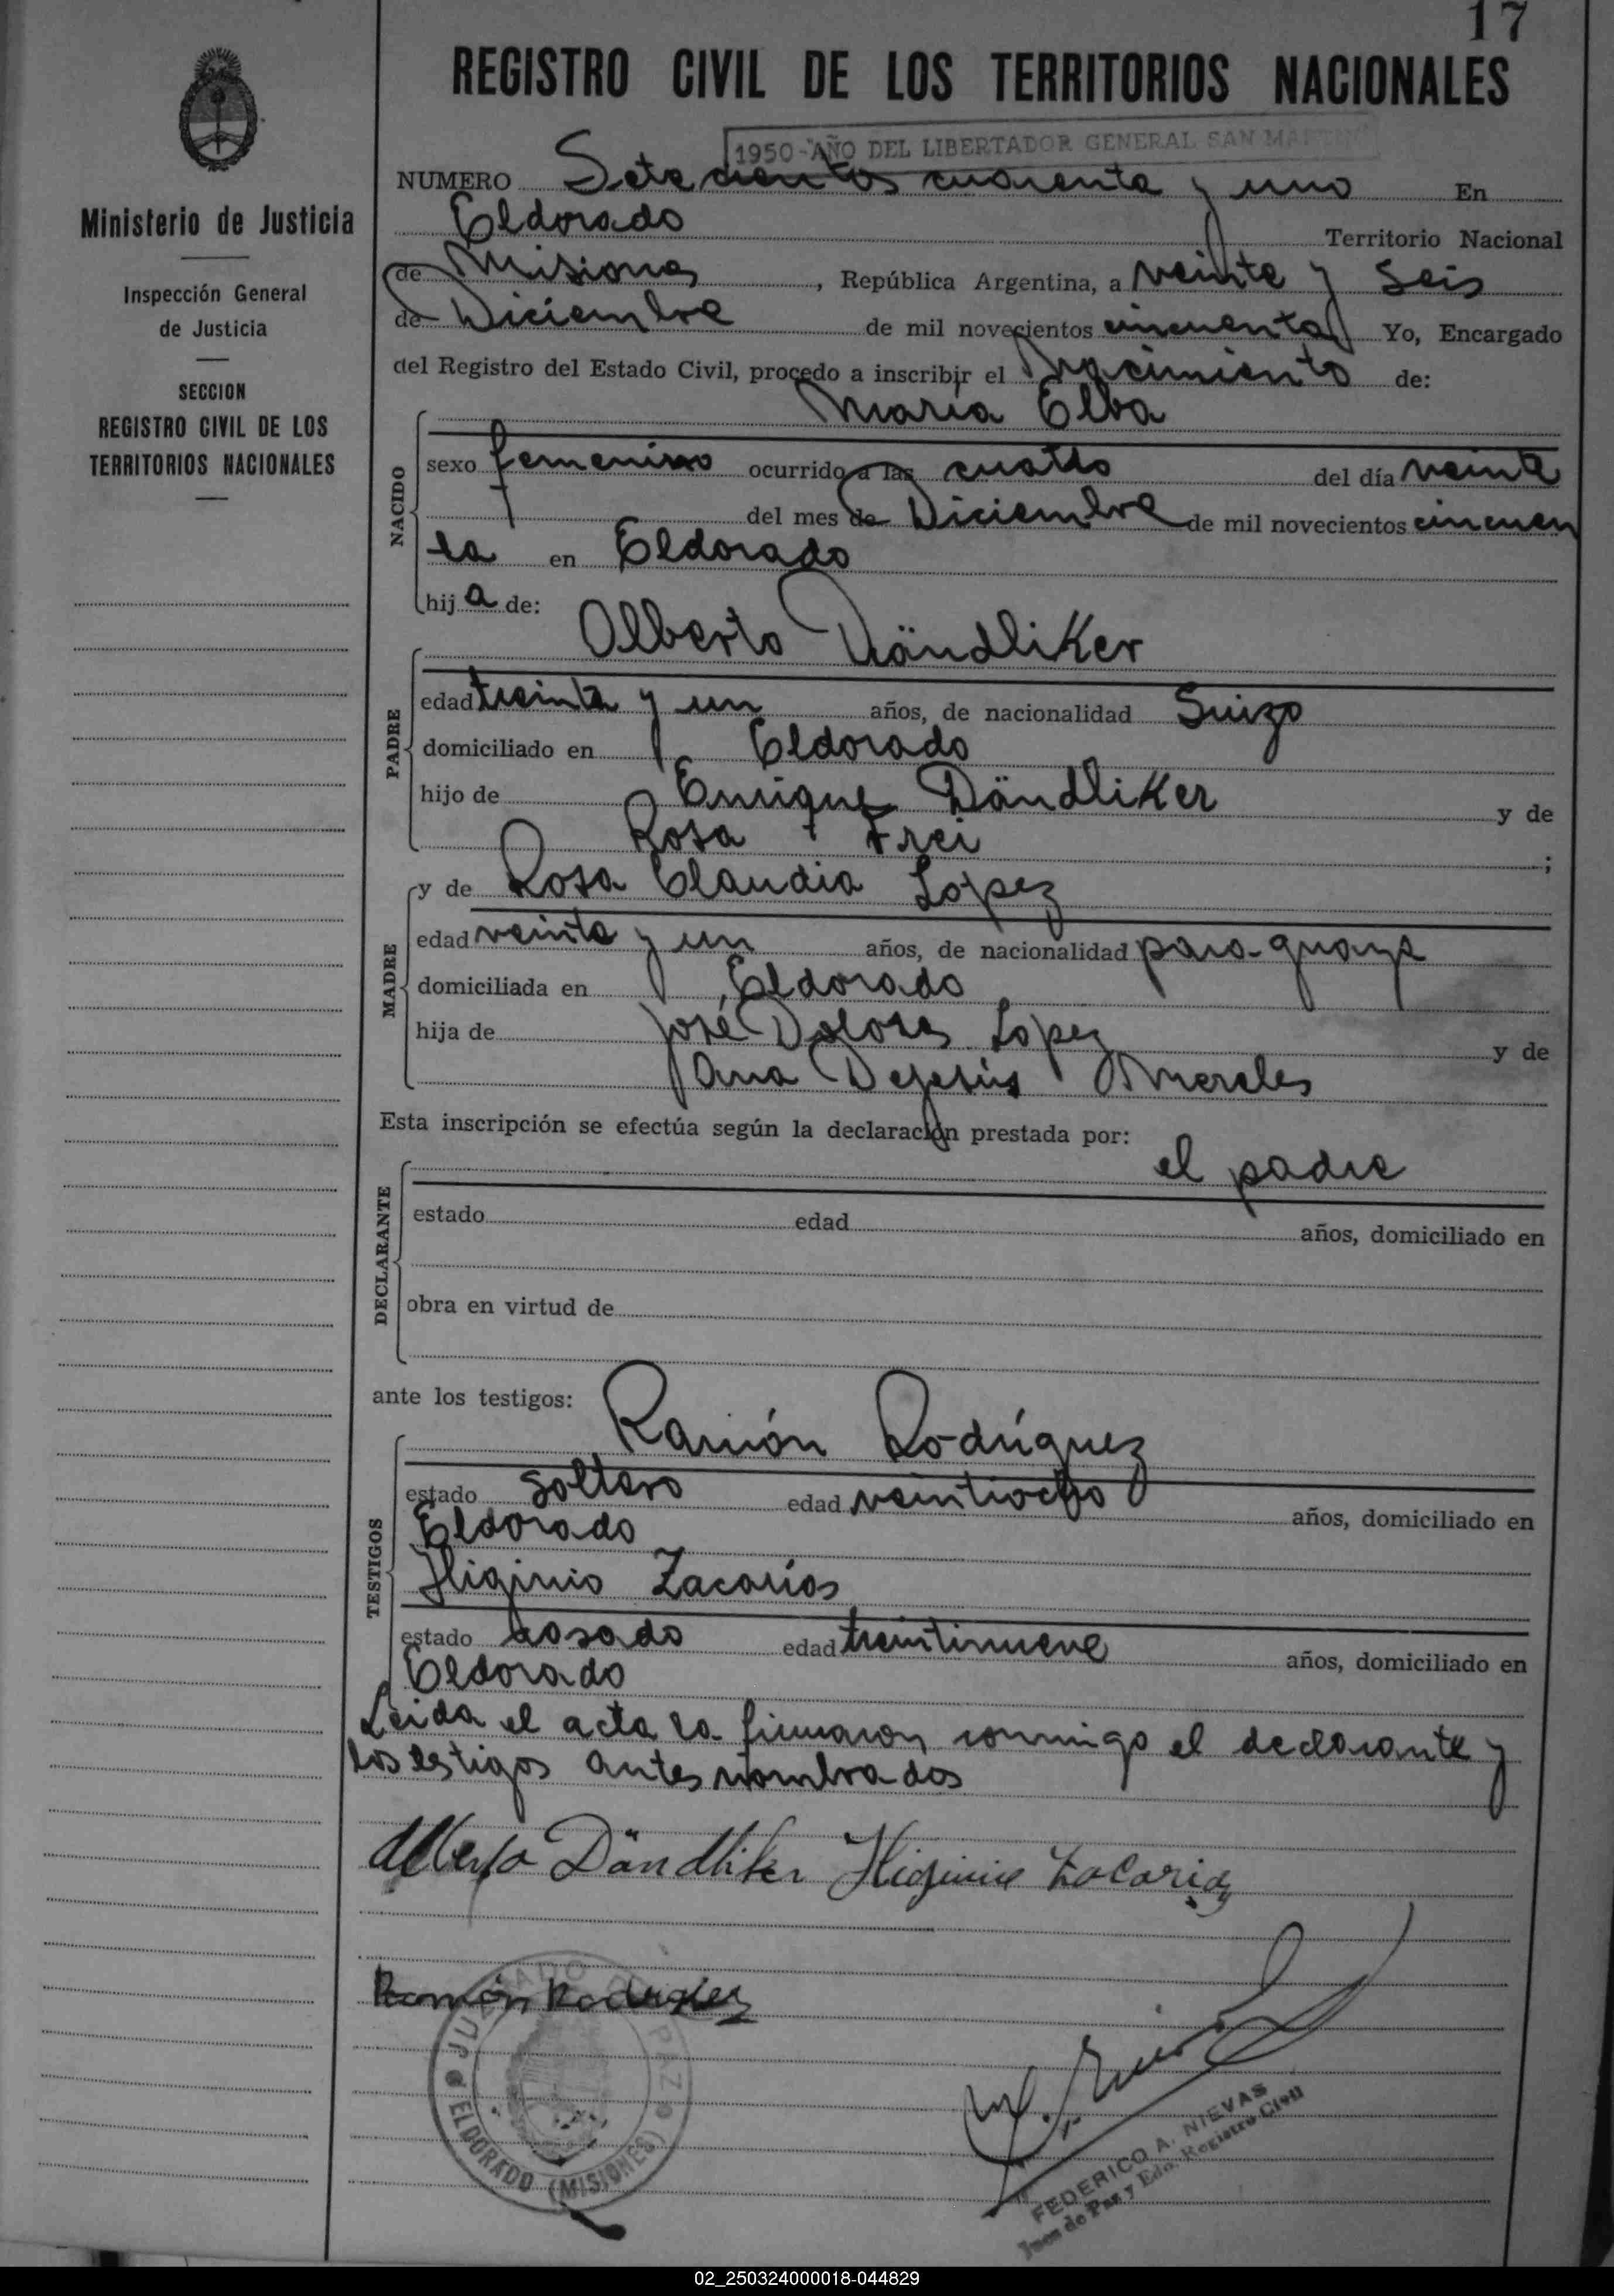 17
REGISTRO CIVIL DE LOS TERRITORIOS NACIONALES
1950-"AÑO DEL LIBERTADOR GENERAL SAN MARTIN"
Ministerio de Justicia
Inspección General
de Justicia
SECCION
REGISTRO CIVIL DE LOS
TERRITORIOS NACIONALES
NUMERO Setecientos cuarenta y uno En
Eldorado Territorio Nacional
de Misiones, República Argentina, a veinte y seis
de Diciembre de mil novecientos cincuenta Yo, Encargado
del Registro del Estado Civil, procedo a inscribir el Nacimiento de:
María Elba
NACIDO
sexo femenino ocurrido a las cuatro del día veinte
del mes de Diciembre de mil novecientos cincuen
ta en Eldorado
hija de:
Alberto Dändliker
PADRE
edad treinta y un años, de nacionalidad Suizo
domiciliado en Eldorado
hijo de Enrique Dändliker y de
Rosa Frei ;
MADRE
y de Rosa Claudia Lopez
edad veinte y un años, de nacionalidad para-guaya
domiciliada en Eldorado
hija de José Dolores Lopez y de
Ana Dejesús Mereles
Esta inscripción se efectúa según la declaración prestada por:
el padre
DECLARANTE
estado edad años, domiciliado en
obra en virtud de
ante los testigos:
Ramón Rodríguez
TESTIGOS
estado soltero edad veintiocho años, domiciliado en
Eldorado
Higinio Zacarías
estado casado edad treintinueve años, domiciliado en
Eldorado
Leida el acta la firmaron conmigo el declarante y
los testigos antes nombrados
Alberto Dändliker Higinio Zacarias
Ramón Rodriguez
JUZGADO DE PAZ
ELDORADO (MISIONES)
FEDERICO A. NIEVAS
Juez de Paz y Edo. Registro Civil
02_250324000018-044829